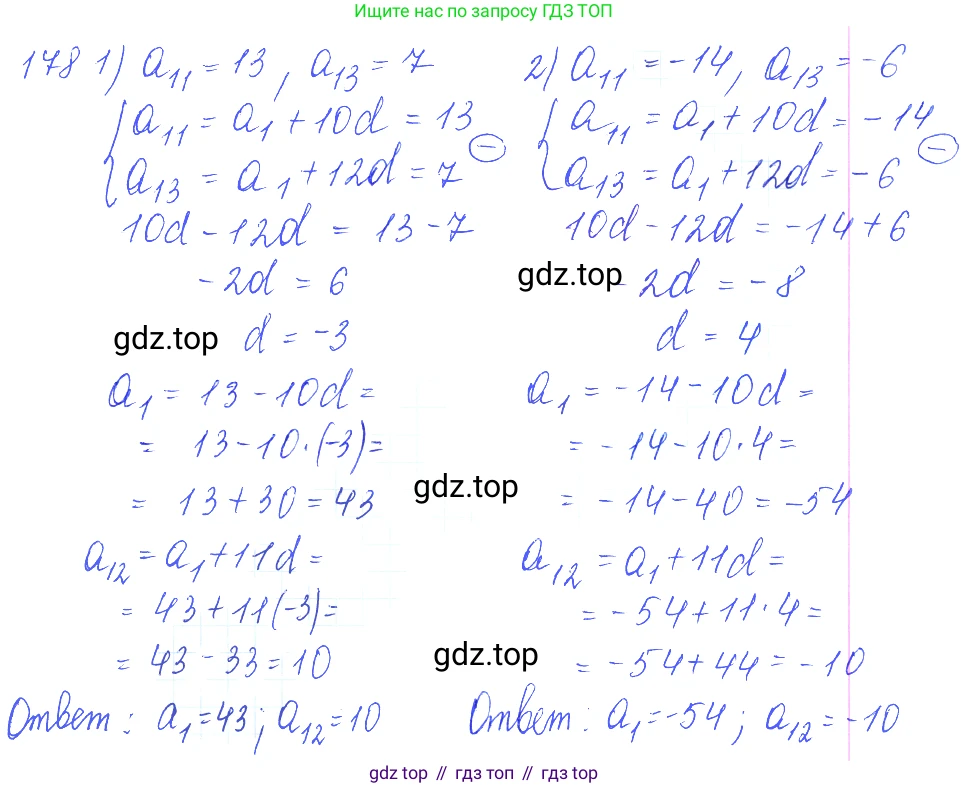 Ищите нас по запросу ГДЗ ТОП
178 1) a₁₁ = 13, a₁₃ = 7
a₁₁ = a₁ + 10d = 13
a₁₃ = a₁ + 12d = 7 (−)
10d − 12d = 13 − 7
−2d = 6
gdz.top d = −3
a₁ = 13 − 10d =
= 13 − 10·(−3) =
= 13 + 30 = 43
a₁₂ = a₁ + 11d =
= 43 + 11(−3) =
= 43 − 33 = 10
Ответ: a₁ = 43; a₁₂ = 10
2) a₁₁ = −14, a₁₃ = −6
a₁₁ = a₁ + 10d = −14
a₁₃ = a₁ + 12d = −6 (−)
10d − 12d = −14 + 6
gdz.top - 2d = −8
d = 4
a₁ = −14 − 10d =
= −14 − 10·4 =
gdz.top = −14 − 40 = −54
a₁₂ = a₁ + 11d =
= −54 + 11·4 =
gdz.top = −54 + 44 = −10
Ответ: a₁ = −54; a₁₂ = −10
gdz top // гдз топ // gdz top